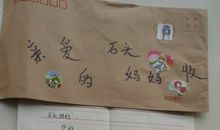 亲爱 石头 收
的 妈妈
石头妈妈